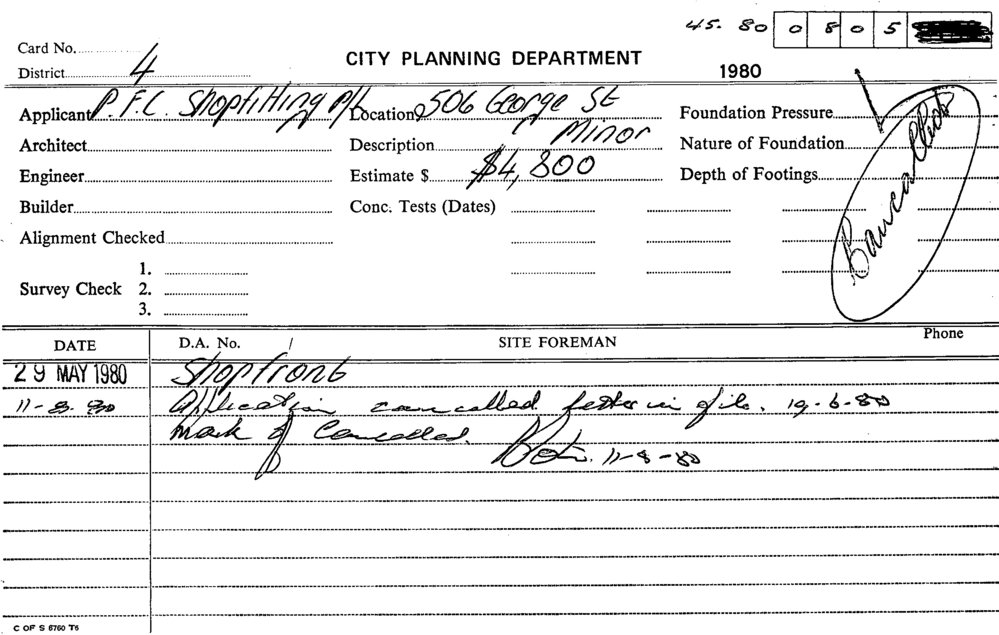 45. 80 0 8 0 5
Card No.
District 4
CITY PLANNING DEPARTMENT
1980
Applicant P.F.C. Shopfitting P/L Location 506 George St Foundation Pressure
Architect Description Minor Nature of Foundation
Engineer Estimate $ $4,800 Depth of Footings
Builder Conc. Tests (Dates)
Alignment Checked
1.
Survey Check 2.
3.
DATE D.A. No. / SITE FOREMAN Phone
29 MAY 1980 Shopfront
11-8-80 Application cancelled letter in file. 19-6-80
Mark of Cancelled.
11-8-80
C OF S 6760 T6